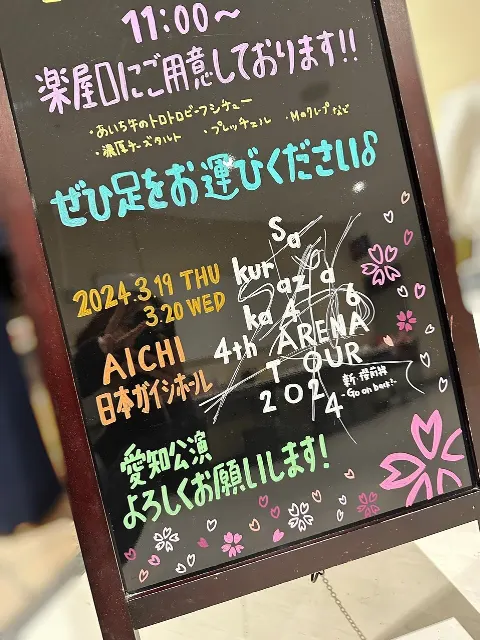 11:00～
楽屋口にご用意しております!!
・あいち牛のトロトロビーフシチュー
・濃厚チーズタルト ・プレッツェル ・Mのクレープ など
ぜひ足をお運びください♪
2024.3.19 THU
3.20 WED
AICHI
日本ガイシホール
Sa
kurazaka
46
4th ARENA
TOUR
2024
新・櫻前線
-Go on back?-
愛知公演
よろしくお願いします!